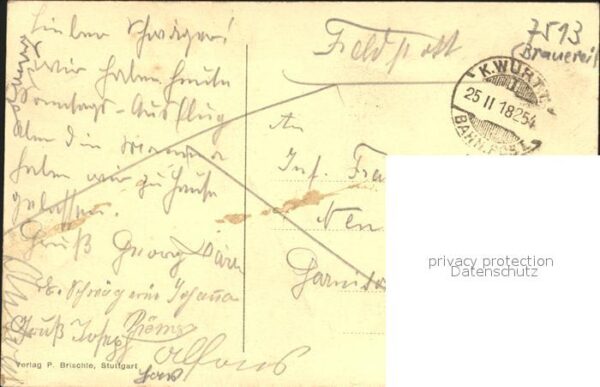 Lieber Schwager!
Wir haben heute
Sonntags-Ausflug
aber die Mama
haben wir zu Hause
gelassen.
Gruß Georg
Schwägerin Johanna
Gruß Joseph
Alfons
Verlag P. Brischle, Stuttgart
Feldpost
7513
(Brauerei)
K.WÜRTT.
25 II 18 254
BAHN.POST
An
Inf.
Garnison
privacy protection
Datenschutz